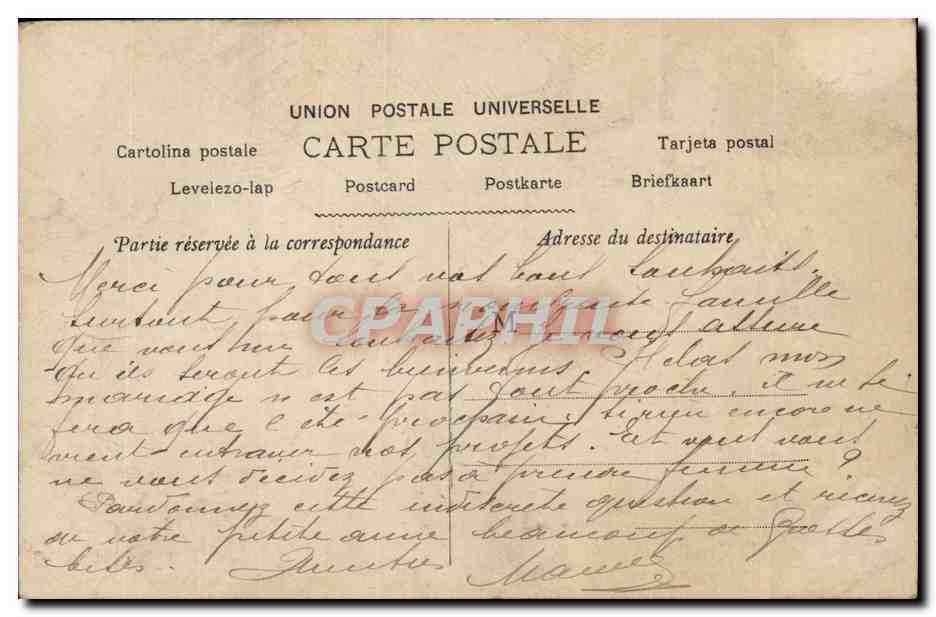 UNION POSTALE UNIVERSELLE
CARTE POSTALE
Cartolina postale
Tarjeta postal
Levelezo-lap
Postcard
Postkarte
Briefkaart
Partie réservée à la correspondance
Adresse du destinataire
M
CPAPHIL
Merci pour tout vos bons souhaits.
Surtout pour la nombreuse famille
que vous me souhaitez je vous assure
qu'ils seront les bienvenus. Helas mon
mariage n'est pas tout proche, il ne se
fera que l'été prochain, si rien encore ne
vient entraver nos projets. Et vous vous
ne vous décidez pas à prendre femme ?
Pardonnez cette indiscrète question et recevez
de votre petite amie beaucoup de grosses
bises.